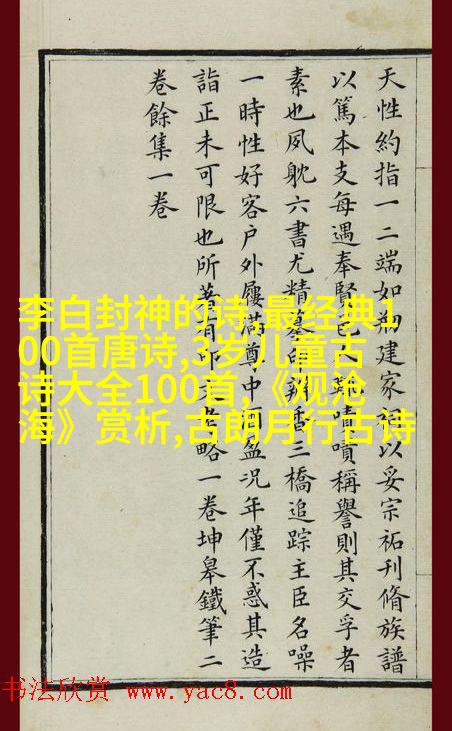 天性約指一二端如初建家祠以妥宗祏刊脩族譜
以篤本支每遇奉賢邑嘖嘖稱譽則其交孚者
素也夙躭六書尤精摹印瓣香三橋追踪主臣名噪
一時性好客户外屨滿尊中酒盈況年僅不惑其造
詣正未可限也所著有印文考略一卷坤皋鐵筆二
卷餘集一卷
李白封神的诗,最经典1
00首唐诗,3岁儿童古
诗大全100首,《观沧
海》赏析,古朗月行古诗
书法欣赏 www.yac8.com